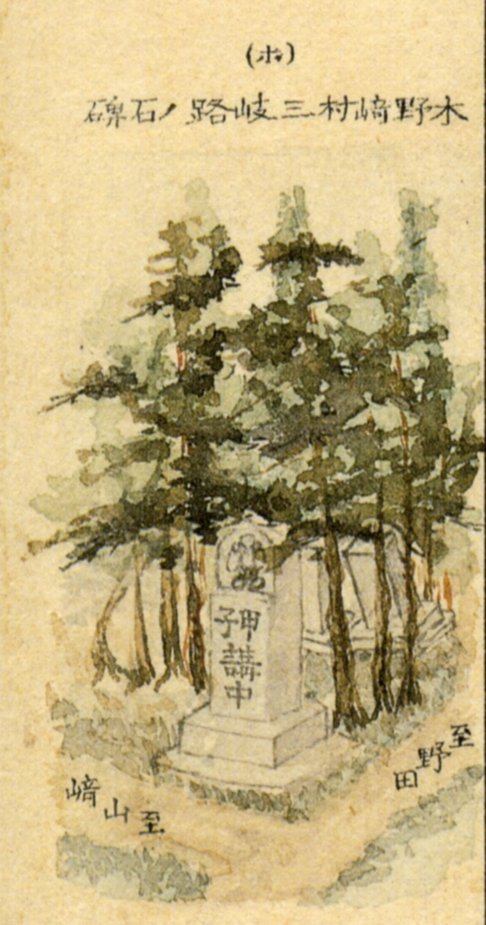 (ホ)
木野﨑村三岐路ノ石碑
甲子
講
中
至野田
至山﨑